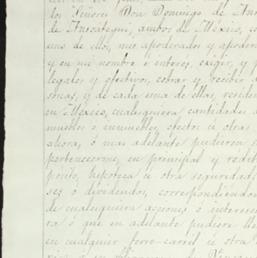 los Señores Don Domingo de
de Ansoategui, ambos de México, co
uno de ellos, mis apoderados y apoder
y en mi nombre é interes, exigir, y p
legales y efectivos, cobrar y recibir
sonas, y de cada una de ellas, residen
en México, cualesquiera cantidades
muebles é inmuebles, efectos ú otras
ahora, ó mas adelante pudieren
pertenecerme, en principal y redit
hipoteca ú otra seguridad
ses ó dividendos, correspondien
de cualesquiera acciones ó interes
ra ó que en adelante pudiera
en cualquier ferro-carril ú otra